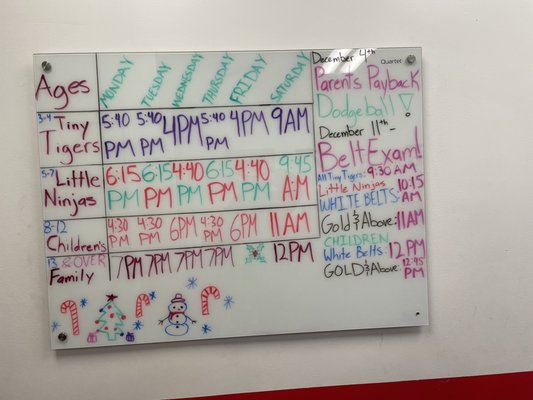 Ages MONDAY TUESDAY WEDNESDAY THURSDAY FRIDAY SATURDAY
3-4 Tiny Tigers 5:40 PM 5:40 PM 4PM 5:40 PM 4PM 9AM
5-7 Little Ninjas 6:15 PM 6:15 PM 4:40 PM 6:15 PM 4:40 PM 9:45 A.M
8-12 Children's 4:30 PM 4:30 PM 6PM 4:30 PM 6PM 11AM
13 & OVER Family 7PM 7PM 7PM 7PM 12PM
December 4th
Quartet
Parents Payback
Dodgeball!
December 11th-
Belt Exam!
All Tiny Tigers: 9:30 AM
Little Ninjas
WHITE BELTS: 10:15 AM
Gold & Above: 11AM
CHILDREN
White Belts: 12PM
GOLD & Above: 12:45 PM